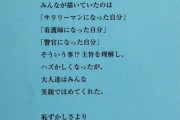 みんなが描いていたのは
「サラリーマンになった自分」
「看護師になった自分」
「警官になった自分」
そういう事!? 主旨を理解し、
ハズかしくなったが、
大人達はみんな
笑顔でほめてくれた。
恥ずかしさより